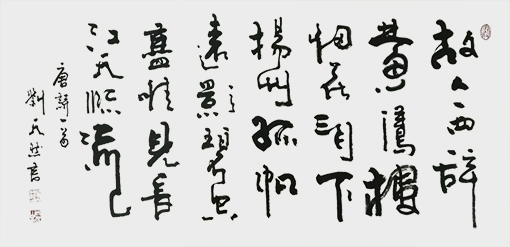 故人西辞
黄鶴樓
烟花三月下
揚州孤帆
遠影碧空
盡惟見長
江天際流
唐詩一首
書